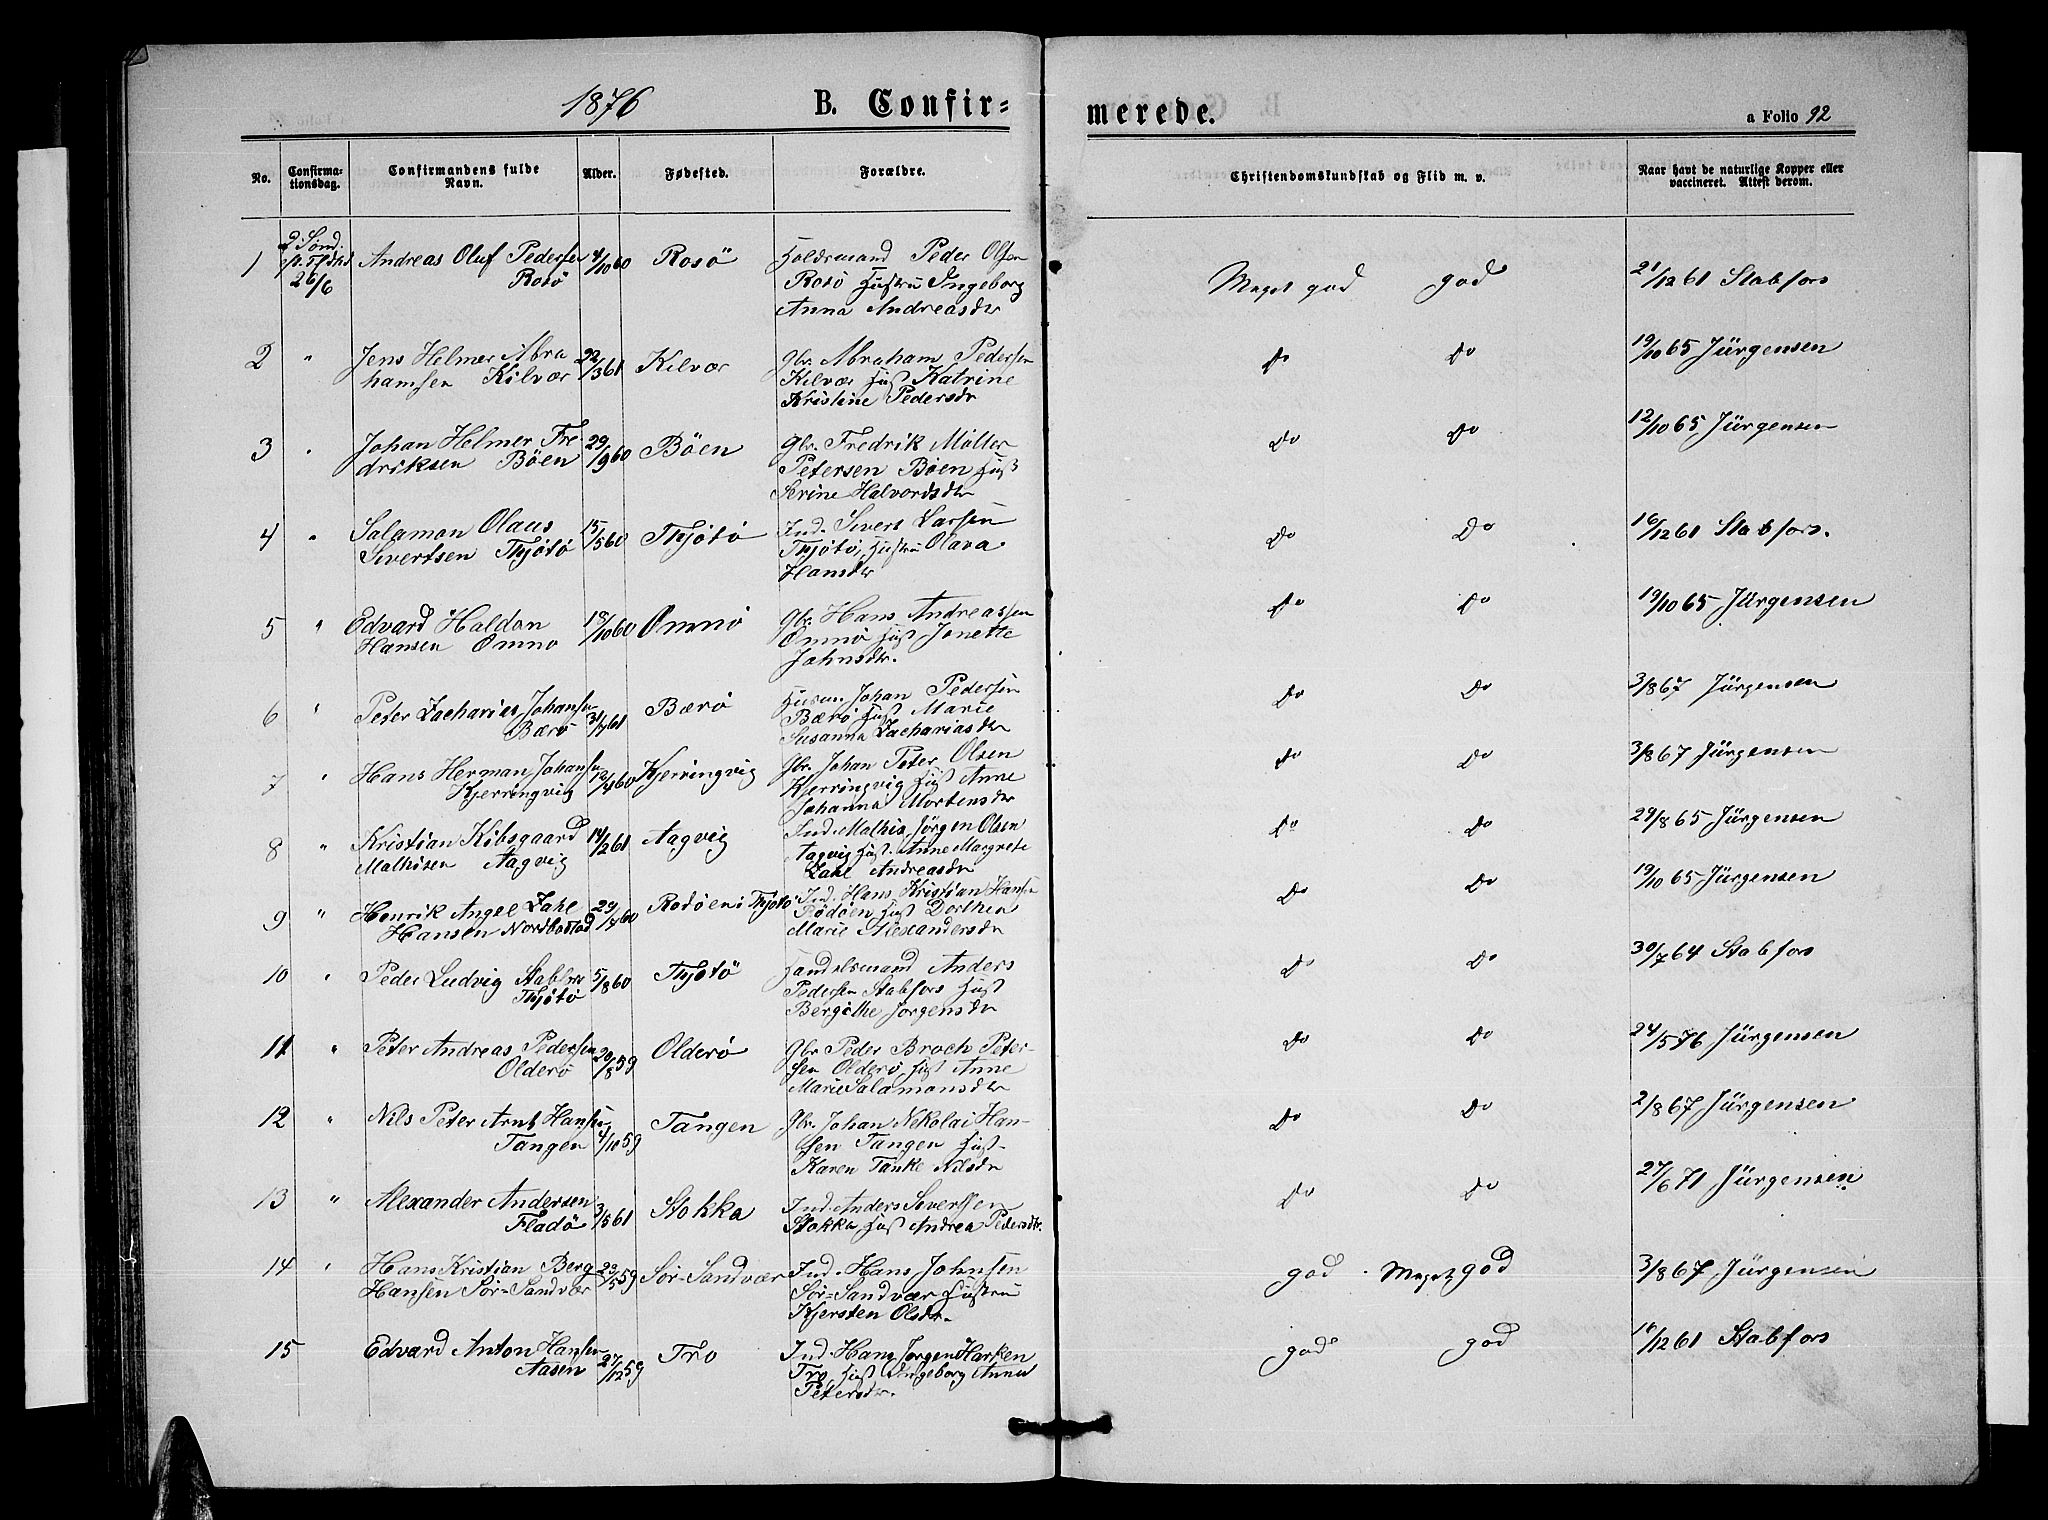 1876 B. Confir=merede. a Folio 92
No. Confirma-tionsdag. Confirmandens fulde Navn. Alder. Fødested. Forældre. Christendomskundskab og Flid m. v. Naar havt de naturlige Kopper eller vaccineret. Attest derom.
1 26/6 Andreas Oluf Pedersen 4/10 60 Rosö Peder Olsen
Rosö Rosö Hustru Ingeborg Meget god god 21/12 61 Stabfors
Anna Andreasdtr
2 " Jens Helmer Abra 22/3 61 Kilvær Gbr. Abraham Pedersen Do Do 19/10 65 Jürgensen
hamsen Kilvær Kilvær Hust Katrine
Kristine Pedersdr
3 " Johan Helmer Fre- 29/9 60 Böen Gbr. Fredrik Möller Do Do 12/10 65 Jürgensen
driksen Böen Petersen Böen Hust
Serine Halvordsdtr
4 " Salamon Olaus 15/5 60 Thjötö Ind. Sivert Larsen Do Do 16/12 61 Stabfors.
Sivertsen Thjötö Thjötö, Hustru Olava
Hansdtr
5 " Edvard Haldan 18/10 60 Omnö Gbr. Hans Andreassen Do Do 19/10 65 Jürgensen
Hansen Omno Omnö Hust Jonette
Johnsdtr.
6 " Peter Zacharias Johansen 31/7 61 Bærö Husm. Johan Pedersen Do Do 3/8 67 Jürgensen
Bærö Bærö Hust Marie
Susanna Zachariasdtr
7 " Hans Herman Johansen 12/4 60 Kjerringvig Gbr. Johan Peter Olsen Do Do 3/8 67 Jürgensen
Kjerringvig Kjerringvig Hust Anne
Johanna Mortensdtr
8 " Kristian Kibsgaard 14/2 61 Aagvig Ind. Mathis Jörgen Olsen Do Do 29/8 65 Jürgensen
Mathisen Aagvig Aagvig Hust. Anne Margrete
Zahl Andreasdr
9 " Henrik Angel Zahl 29/7 60 Rosöen i Thjötö Ind. Hans Kristian Hansen Do Do 19/10 65 Jürgensen
Hansen Hust Dorthea
Marie Alexandersdr
10 " Peder Ludvig 5/8 60 Thjötö Handelsmand Anders Do Do 30/7 64 Stabfors
Thjötö Pedersen Stabfors Hust
Bergithe Jörgensdr
11 " Peter Andreas Pedersen 20/8 59 Olderö Gbr Peder Broch Peter- Do Do 24/5 76 Jürgensen
Olderö sen Olderö Hust Anne
Marie Salamonsdtr
12 " Nils Peter Arnt Hansen 4/10 59 Tangen Gbr. Johan Nikolai Han- Do Do 2/8 67 Jürgensen
Tangen sen Tangen Hust
Karen Tanke Nilsdr
13 " Alexander Andersen 3/5 61 Stokka Ind. Anders Sivertsen Do Do 27/6 71 Jürgensen
Fladö Stokka Hust Andrea Pedersdtr.
14 " Hans Kristian Berg 23/5 59 Sör-Sandvær Ind. Hans Johnsen god Meget god 3/8 67 Jürgensen
Hansen Sör=Sandvær Sör=Sandvær Hustru
Kjersten Olsdtr.
15 Edvard Anton Hansen 27/12 59 Tro Ind. Hans Jörgen Harken god god 16/12 61 Stabfors
Aasen Tro, Hust Ingeborg Anna
Petersdtr.